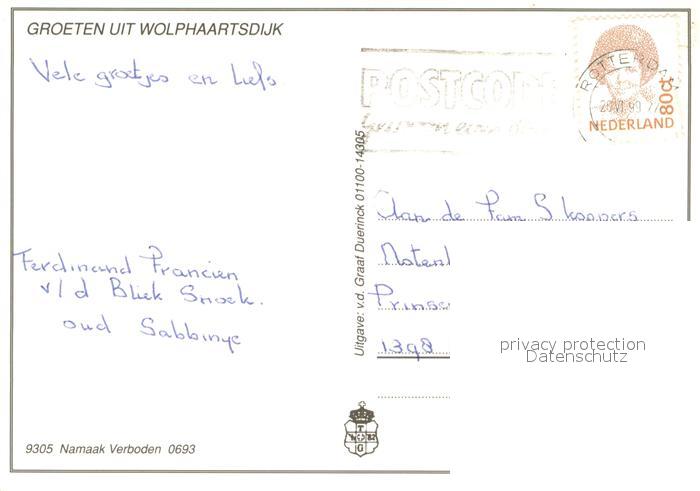 GROETEN UIT WOLPHAARTSDIJK
Vele groetjes en liefs
Ferdinand Francien
v/d Bliek Snoek.
oud Sabbinge
9305 Namaak Verboden 0693
Uitgave: v.d. Graaf Duerinck 01100-14305
POSTCODE
ROTTERDAM
80ct
NEDERLAND
Aan de Fam
Prinse
privacy protection
Datenschutz
T
G